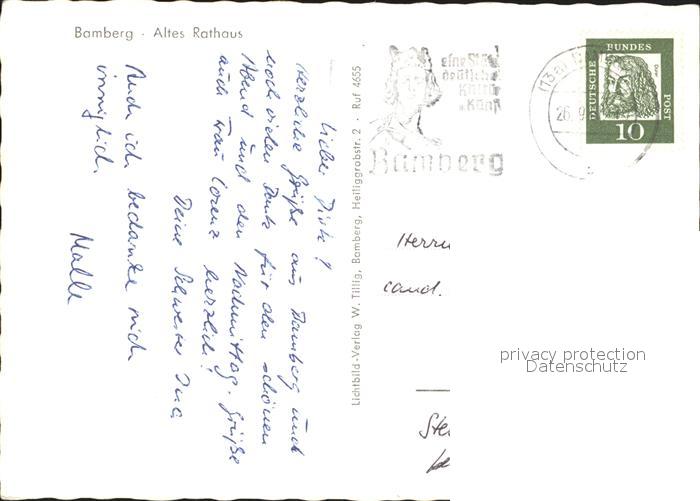 Bamberg - Altes Rathaus
Lieber Dirk!
Herzliche Grüße aus Bamberg und
noch vielen Dank für den schönen
Abend und den Nachmittag. Grüße
auch Frau Lorenz herzlich!
Deine Schwester Inge
Auch ich bedanke mich
inniglich.
Malle
Lichtbild-Verlag W. Tillig, Bamberg, Heiliggrabstr. 2 · Ruf 4655
eine Stadt
deutscher
Kultur
u. Kunst
Bamberg
(13a)
26.9
DEUTSCHE
BUNDES
POST
10
Herrn
cand.
privacy protection
Datenschutz